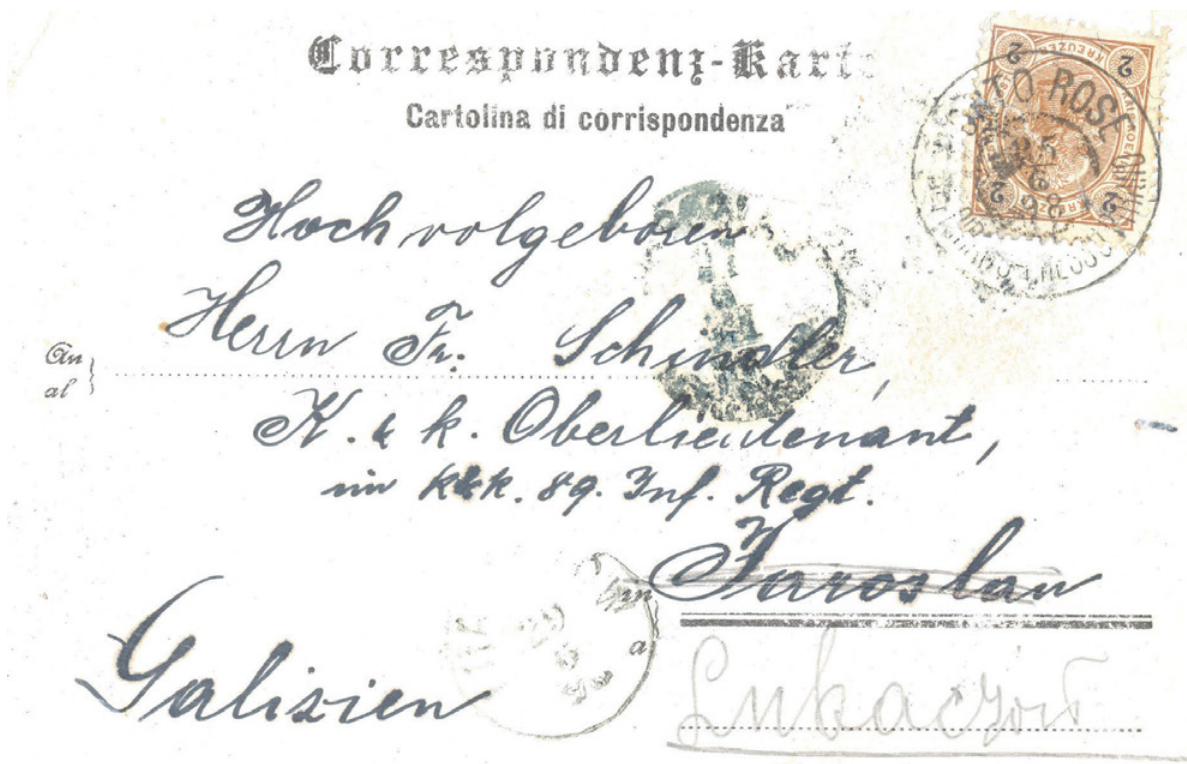 Correspondenz-Karte
Cartolina di corrispondenza
2 KREUZER 2
2 2
PORTO ROSE
25
6
98
Hochwolgeboren
Herrn Fr. Schindler,
An
al
K. & k. Oberlieutenant,
im k&k. 89. Inf. Regt.
in Jaroslau
a
Galizien